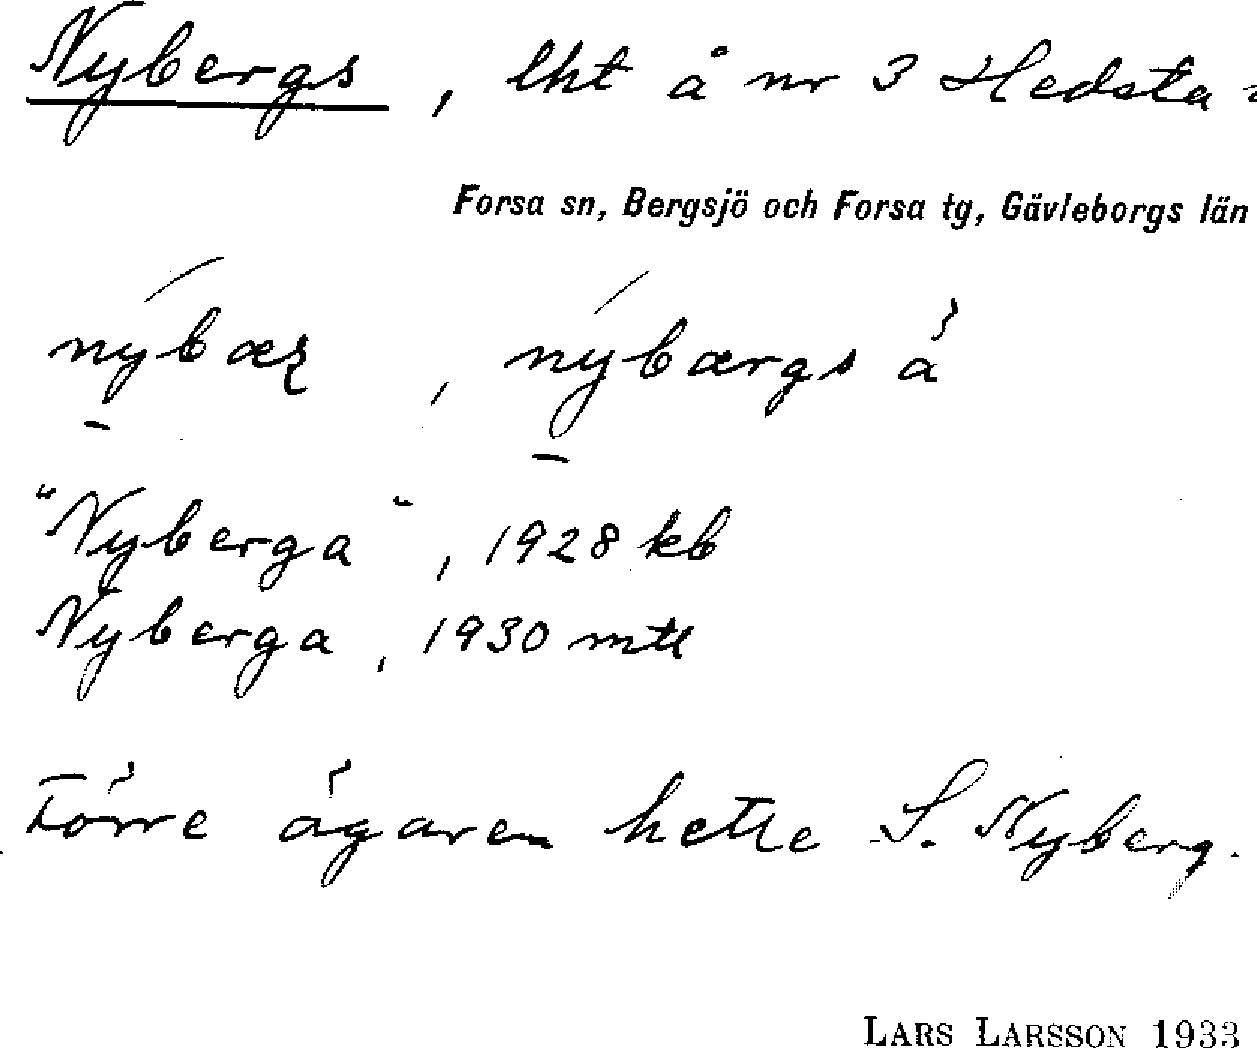 Nybergs, lht å nr 3 Hedsta
Forsa sn, Bergsjö och Forsa tg, Gävleborgs län
nybærgs å
"Nyberga", 1928 kb
Nyberga, 1930 mtl
Förre ägaren hette S. Nyberg.
LARS LARSSON 1933